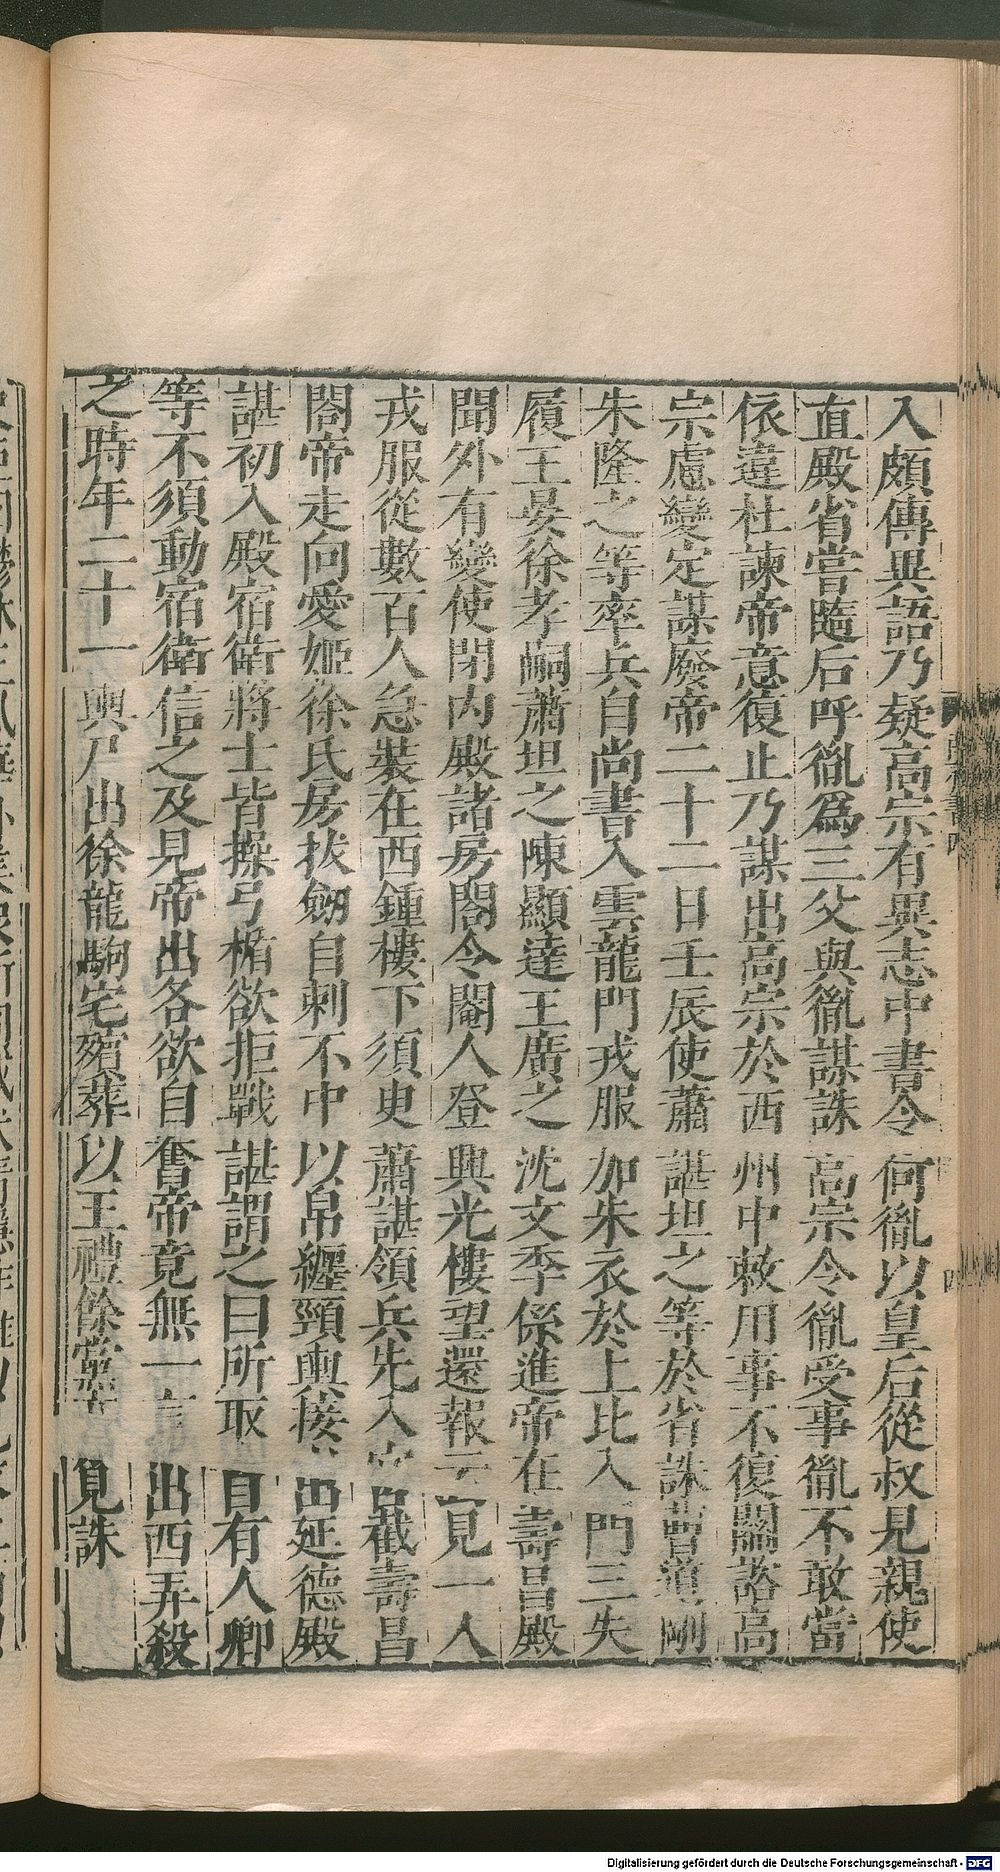 入頗傳異語乃疑高宗有異志中書令何胤以皇后從叔見親使
直殿省嘗隨后呼胤爲三父與胤謀誅高宗令胤受事胤不敢當
依違杜諫帝意復止乃謀出高宗於西州中敕用事不復關諮高
宗慮變定謀廢帝二十二日壬辰使蕭諶坦之等於省誅曹道剛
朱隆之等率兵自尚書入雲龍門戎服加朱衣於上比入門三失
履王晏徐孝嗣蕭坦之陳顯達王廣之沈文季係進帝在壽昌殿
聞外有變使閉內殿諸房閤令閹人登興光樓望還報云見一人
戎服從數百人急裝在西鍾樓下須臾蕭諶領兵先入宮截壽昌
閤帝走向愛姬徐氏房拔劒自刺不中以帛纏頸輿接出延德殿
諶初入殿宿衞將士皆操弓楯欲拒戰諶謂之曰所取自有人卿
等不須動宿衞信之及見帝出各欲自奮帝竟無一言出西弄殺
之時年二十一輿尸出徐龍駒宅殯葬以王禮餘黨見誅
南齊書四
四
Digitalisierung gefördert durch die Deutsche Forschungsgemeinschaft - DFG